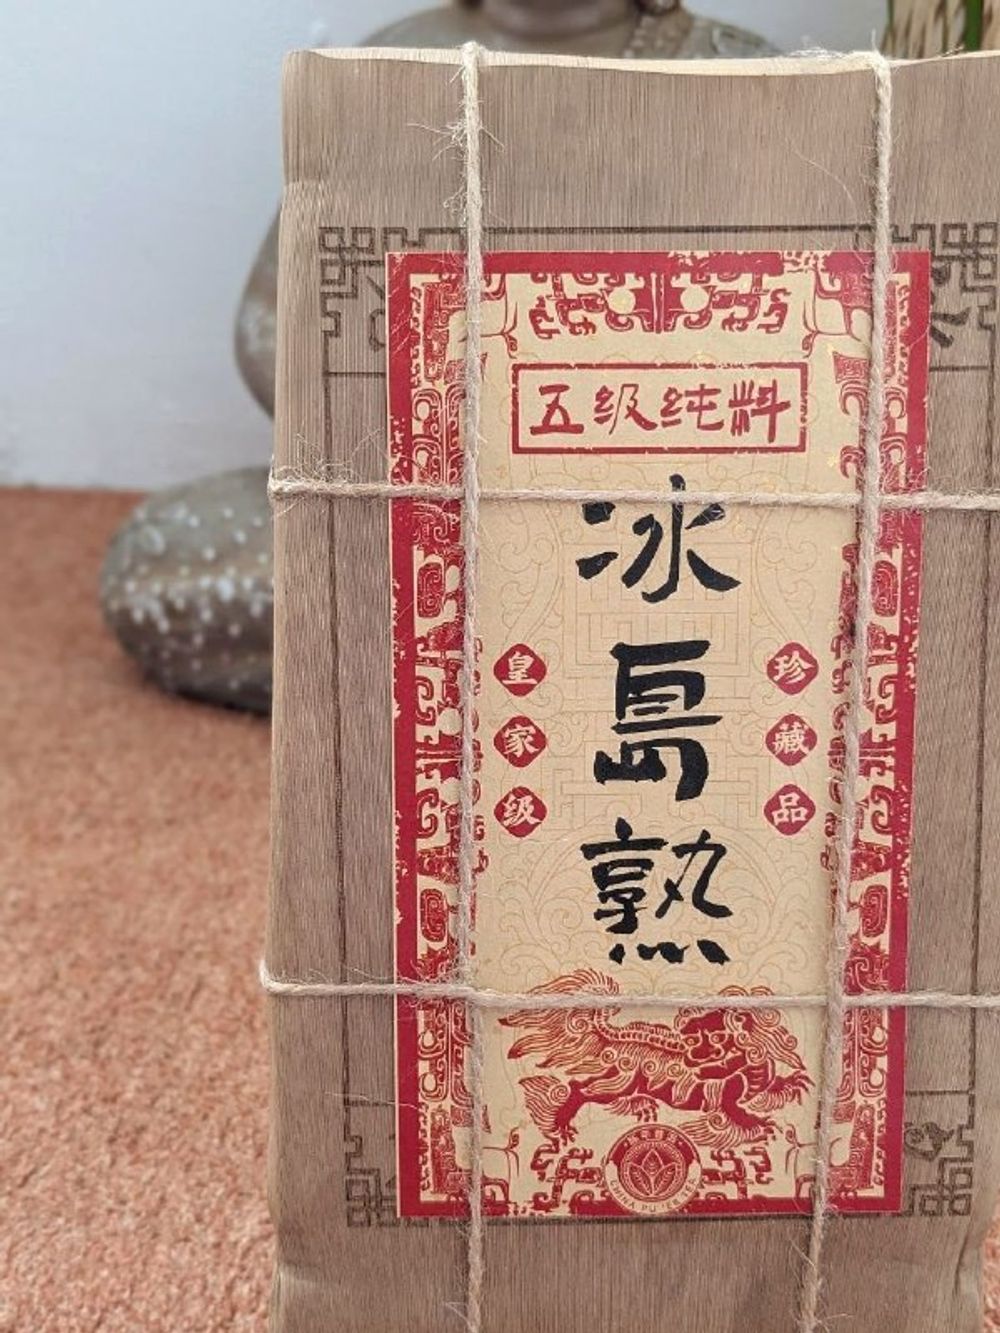 五级纯料
冰岛熟
皇家级
珍藏品
CHINA PU'ER TEA